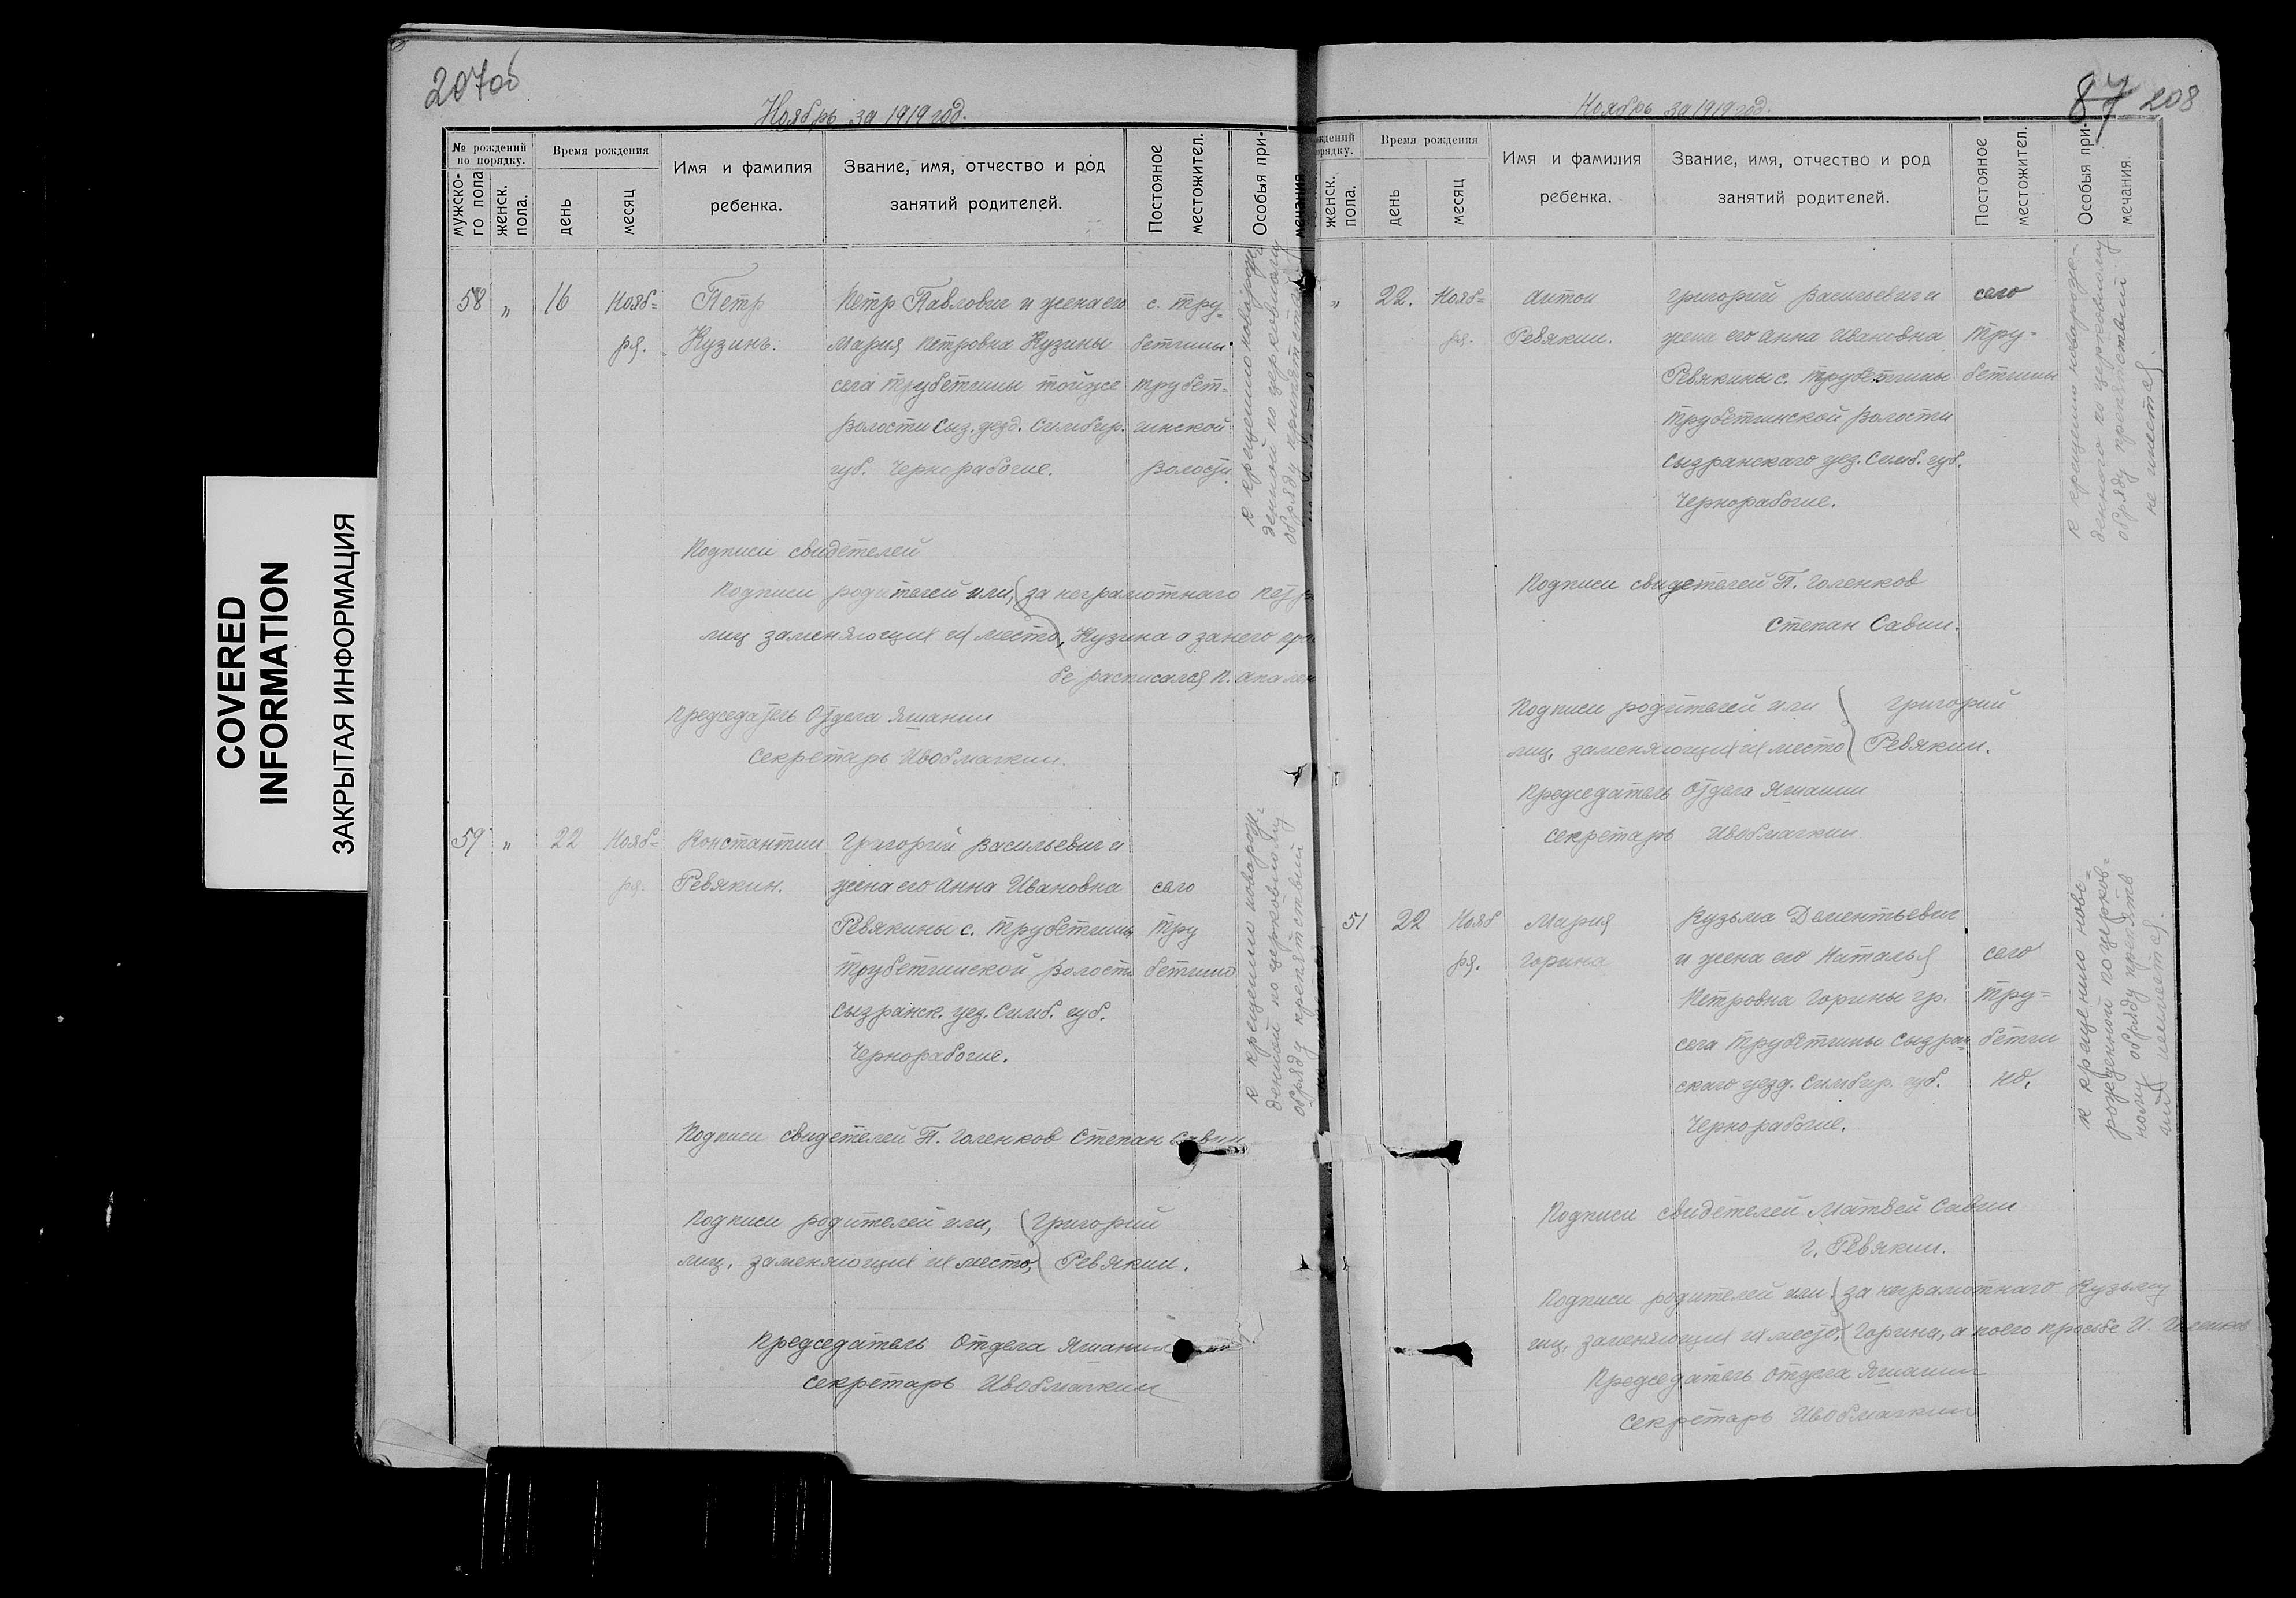 COVERED
INFORMATION
ЗАКРЫТАЯ ИНФОРМАЦИЯ
207об
Ноябрь за 1919 год.
№ рождений по порядку.
мужско-го пола
женск. пола.
Время рождения
день
месяц
Имя и фамилия
ребенка.
Звание, имя, отчество и род
занятий родителей.
Постояное
местожител.
Особыя при-
мечания
58 " 16 Нояб= Петр Петр Павлович и жена его с. Тру=
ря. Кузинъ. Мария Петровна Кузины бетчины
села Трубетчины тойже Трубет=
волости Сыз. уезд. Симбир. чинской
губ. Чернорабочие. волости.
К крещению новорож=
денной по церковному
обряду препятствий
Подписи свидетелей
Подписи родителей или, за неграмотнаго Петра
лиц заменяющих их место, Кузина а занего прось
бе расписался П.
Председатель Отдела Ямашин
Секретарь
59 " 22 Нояб= Константин Григорий Васильевич и
ря. Ревякин. жена его Анна Ивановна село
Ревякины с. Трубетчины Тру
Трубетчинской волости бетчино
Сызранск. уез. Симб. губ.
Чернорабочие.
К крещению новорож=
денной по церковному
обряду препятствий
Подписи свидетелей П. Голенков Степан Савин
Подписи родителей или, Григорий
лиц, заменяющих их место, Ревякин.
Председатель Отдела Ямашин
Секретарь
87 208
Ноябрь за 1919 год.
ждений
рядку.
женск. пола.
Время рождения
день
месяц
Имя и фамилия
ребенка.
Звание, имя, отчество и род
занятий родителей.
Постояное
местожител.
Особыя при-
мечания.
" 22. Нояб= Антон Григорий Васильевич и село
ря. Ревякин. жена его Анна Ивановна Тру=
Ревякины с. Трубетчины бетчины
Трубетчинской волости
Сызранскаго уез. Симб. губ.
Чернорабочие.
К крещению новорож=
деннаго по церковному
обряду препятствий
не имеется.
Подписи свидетелей П. Голенков
Степан Савин.
Подписи родителей или Григорий
лиц, заменяющих их место Ревякин.
Председатель Отдела Ямашин
Секретарь
51 22 Нояб Мария Кузьма Дементьевич
ря. Горина и жена его Наталья село
Петровна Горины гр. Тру=
села Трубетчины Сызран бетчи
скаго уезд. Симбир. губ. но.
Чернорабочие.
К крещению ново=
рожденной по церков=
ному обряду препятв
ий неимеется.
Подписи свидетелей Матвей Савин
Г. Ревякин.
Подписи родителей или за неграмотнаго Кузьму
лиц, заменяющих их место, Горина, а поего просьбе И. Голенков
Председатель Отдела Ямашин
Секретарь